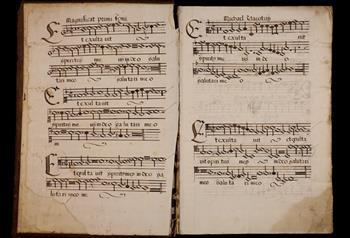 Magnificat primi toni
E
t exulta uit
spiritus me us in deo salu
tari meo salutari meo
E
t exulta uit
spiritus me us in deo salutari meo
in
E
t exulta uit spiritus meus in deo sa
lutari meo
E
t exulta uit
spiritus me us in deo
salutari meo
E
t exulta
uit spiritus meus in deo salutari
meo saluta ri meo